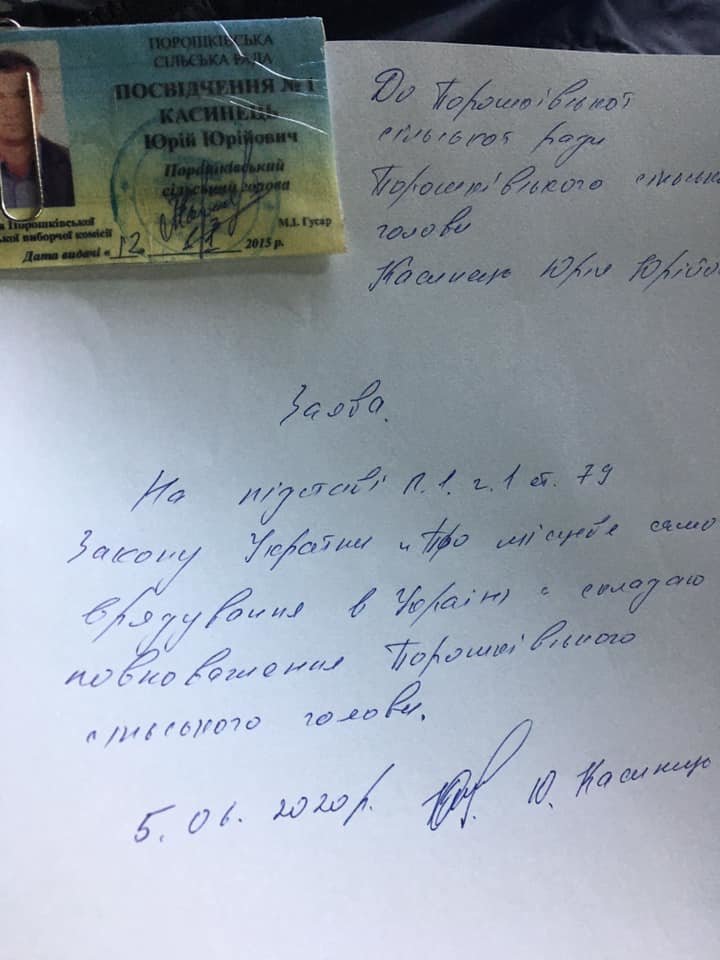 ПОРОШКІВСЬКА
СІЛЬСЬКА РАДА
ПОСВІДЧЕННЯ № 1
КАСИНЕЦЬ
Юрій Юрійович
Порошківський
сільський голова
Порошківської
виборчої комісії
М.І. Гусар
Дата видачі « 12 » 2015 р.
До Порошківської
сільської ради
Порошківського сільськ
голови
Касинець Юрія Юрійов
Заява.
На підставі п.1. ч.1 ст. 79
Закону України "Про місцеве само
врядування в Україні" складаю
повноваження Порошківського
сільського голови.
5. 06. 2020 р. Ю. Касинець